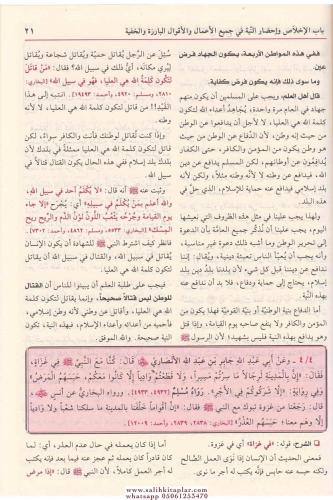 باب الإخلاص وإحضار النية في جميع الأعمال والأقوال البارزة والخفية
٢١
ففي هذه المواطن الأربعة، يكون الجهاد فرض
عين.
وما سوى ذلك فإنه يكون فرض كفاية.
قال أهل العلم: ويجب على المسلمين أن يكون منهم
جهاد في العام مرة واحدة، يُجاهد أعداء الله لتكون
كلمة الله هي العليا، لا لأجل أن يدافعوا عن الوطن
من حيث إنه وطن، لأن الدفاع عن الوطن من حيث
هو وطن يكون من المؤمن والكافر، حتى الكفار
يدافعون عن أوطانهم، لكن المسلم يدافع عن دين
الله، فيدافع عن وطنه لا لأنه وطنه مثلاً، ولكن لأنه
بلد إسلامي، فيدافع عنه حماية للإسلام، الذي حل في
هذه البلد.
ولهذا يجب علينا في مثل هذه الظروف التي نعيشها
اليوم، يجب علينا أن نُذكّر جميع العامة بأن الدعوة
إلى تحرير الوطن وما أشبه ذلك دعوة غير مناسبة،
وأنه يجب أن يُعبأ الناس تعبئة دينية، ويقال: إننا
ندافع عن ديننا قبل كل شيء، لأن بلدنا بلد دين، بلد
إسلامي يحتاج إلى حماية ودفاع، فلا بد أن ندافع
عنه بهذه النية.
أما الدفاع بنية الوطنية أو بنية القومية فهذا يكون من
المؤمن والكافر ولا ينفع صاحبه يوم القيامة، وإذا قتل
وهو يدافع بهذه النية فليس بشهيد؛ لأن الرسول ﷺ
سُئل عن الرجل يُقاتل حمية ويُقاتل شجاعة ويُقاتل
ليُرى مكانه، أيُّ ذلك في سبيل الله؟ فقال: «مَنْ قاتَلَ
لتكونَ كلمةُ الله هي العليا، فهو في سبيل الله» [البخاري:
٢٨١٠، ومسلم: ٤٩٢٠، وأحمد: ١٩٤٩٣]. انتبه إلى هذا
القيد.
وإذا كنت تُقاتل لوطنك فأنت والكافر سواء، لكن
قاتل لتكون كلمة الله هي العليا ممثلة في بلدك لأن
بلدك بلد إسلام، ففي هذه الحال يكون القتال قتالاً في
سبيل الله.
وثبت عنه ﷺ أنه قال: «لا يُكْلَمُ أحد في سبيل الله،
والله أعلم بمن يُكْلَمُ في سبيله» أي: يُجرَح «إلا جاء
يوم القيامة وجُرحُه يثعَبُ اللونُ لون الدم والريح ريح
المسك» [البخاري: ٥٥٣٣، ومسلم: ٤٨٦٢، وأحمد: ٧٣٠٢]
فانظر كيف اشترط النبي ﷺ للشهادة أن يكون الإنسان
يُقاتل في سبيل الله، والقتال في سبيل الله: أن يقاتل
لتكون كلمة الله هي العليا.
فيجب على طلبة العلم أن يبينوا للناس أن القتال
للوطن ليس قتالاً صحيحاً، وإنما يُقاتل لتكون كلمة
الله هي العليا، وأقاتل عن وطني لأنه وطن إسلامي،
فأحميه من أعدائه وأعداء الإسلام، فبهذه النية، تكون
النية صحيحة. والله الموفق.
٤/٤ ـ وعَنْ أبي عبدِ اللهِ جابرِ بنِ عبدِ اللهِ الأنصاريِّ ﵄ قَالَ: كُنَّا معَ النَّبيِّ ﷺ في غَزَاةٍ،
فَقَالَ: «إنَّ بالمدينةِ لَرِجَالاً ما سِرْتُمْ مَسِيراً، وَلاَ قَطَعْتُمْ وَادِياً إلاَّ كانُوا مَعَكُم، حَبَسَهُمُ المَرَضُ»
وفي روايَةٍ: «إِلاَّ شَرَكُوكُمْ في الأَجْرِ». رَوَاهُ مُسْلِمٌ [٤٩٣٢، ٤٩٣٣]. ورواهُ البخاريُّ عن أنسٍ ﵁
قَالَ: رَجَعْنَا من غَزْوَةِ تَبُوكَ مع النبيِّ ﷺ، فَقَالَ: «إنَّ أَقْوَاماً خَلْفَنَا بالمدينةِ ما سَلَكْنَا شِعْباً وَلاَ وَادِياً
إِلاَّ وهم معنا؛ حَبَسَهُمُ العُذْرُ» [البخاري: ٢٨٣٨، ٢٨٣٩، وأحمد: ١٢٠٠٩].
الشرح: قوله: «في غزاة» أي في غزوة.
فمعنى الحديث أن الإنسان إذا نوى العمل الصالح
ولكنه حبسه عنه حابس فإنه يُكتب له أجر ما نوى.
أما إذا كان يعمله في حال عدم العذر، أي: لما
كان قادراً كان يعمله، ثم عجز عنه فيما بعد فإنه يُكتب
له أجر العمل كاملاً، لأن النبي ﷺ قال: «إذا مرض
www.salihkitaplar.com
whatsapp 05061253470